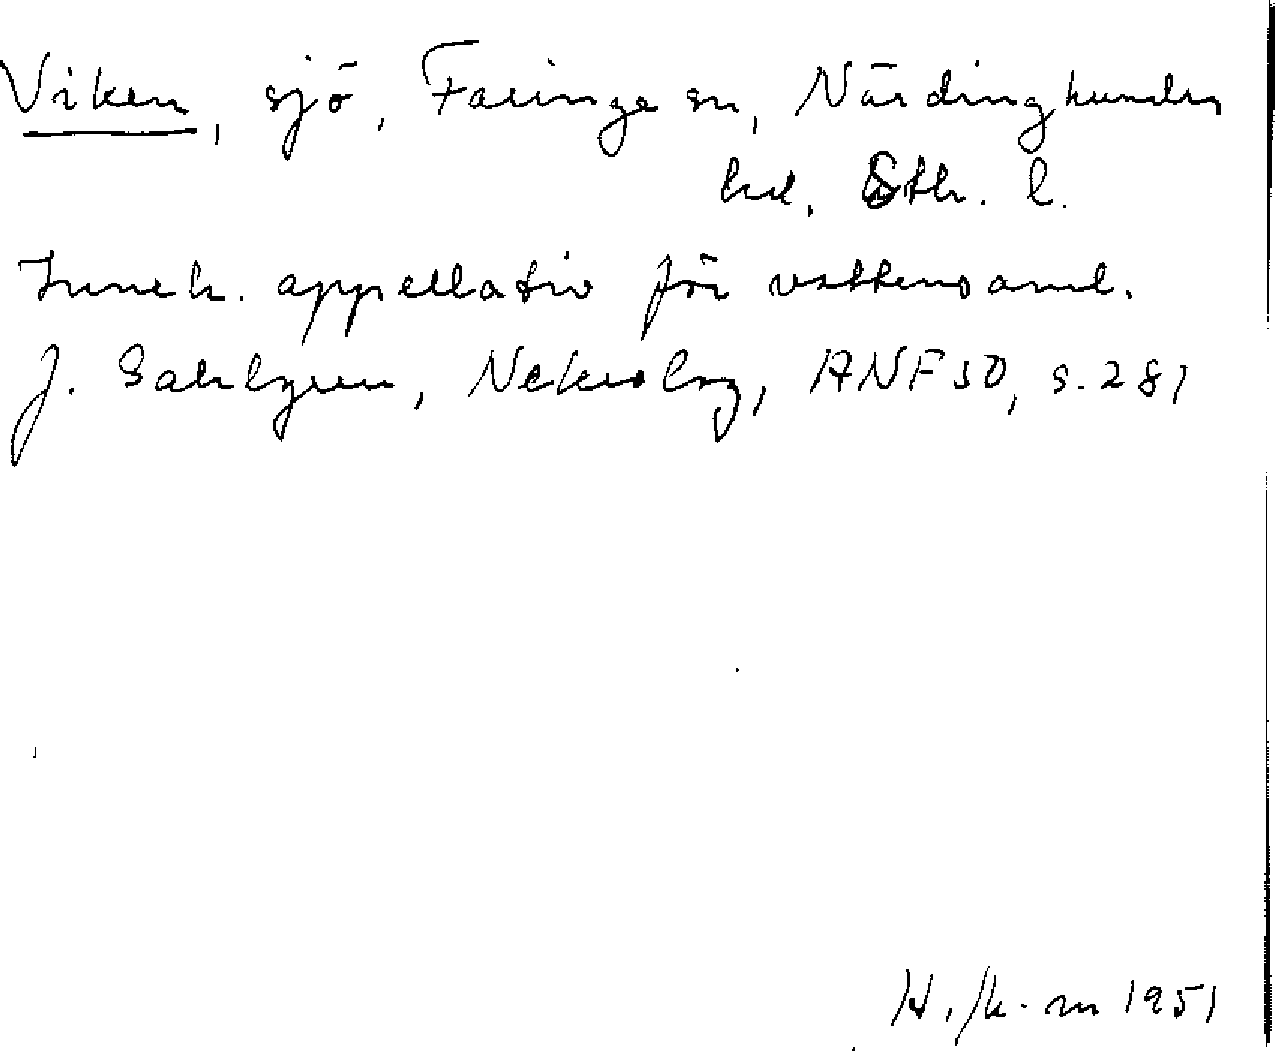 Viken, sjö, Faringe sn, Närdinghundra
hd, Sth. l.
Inneh. appellativ för vattensaml.
J. Sahlgren, Nekrolog, ANF 50, s. 281
1951